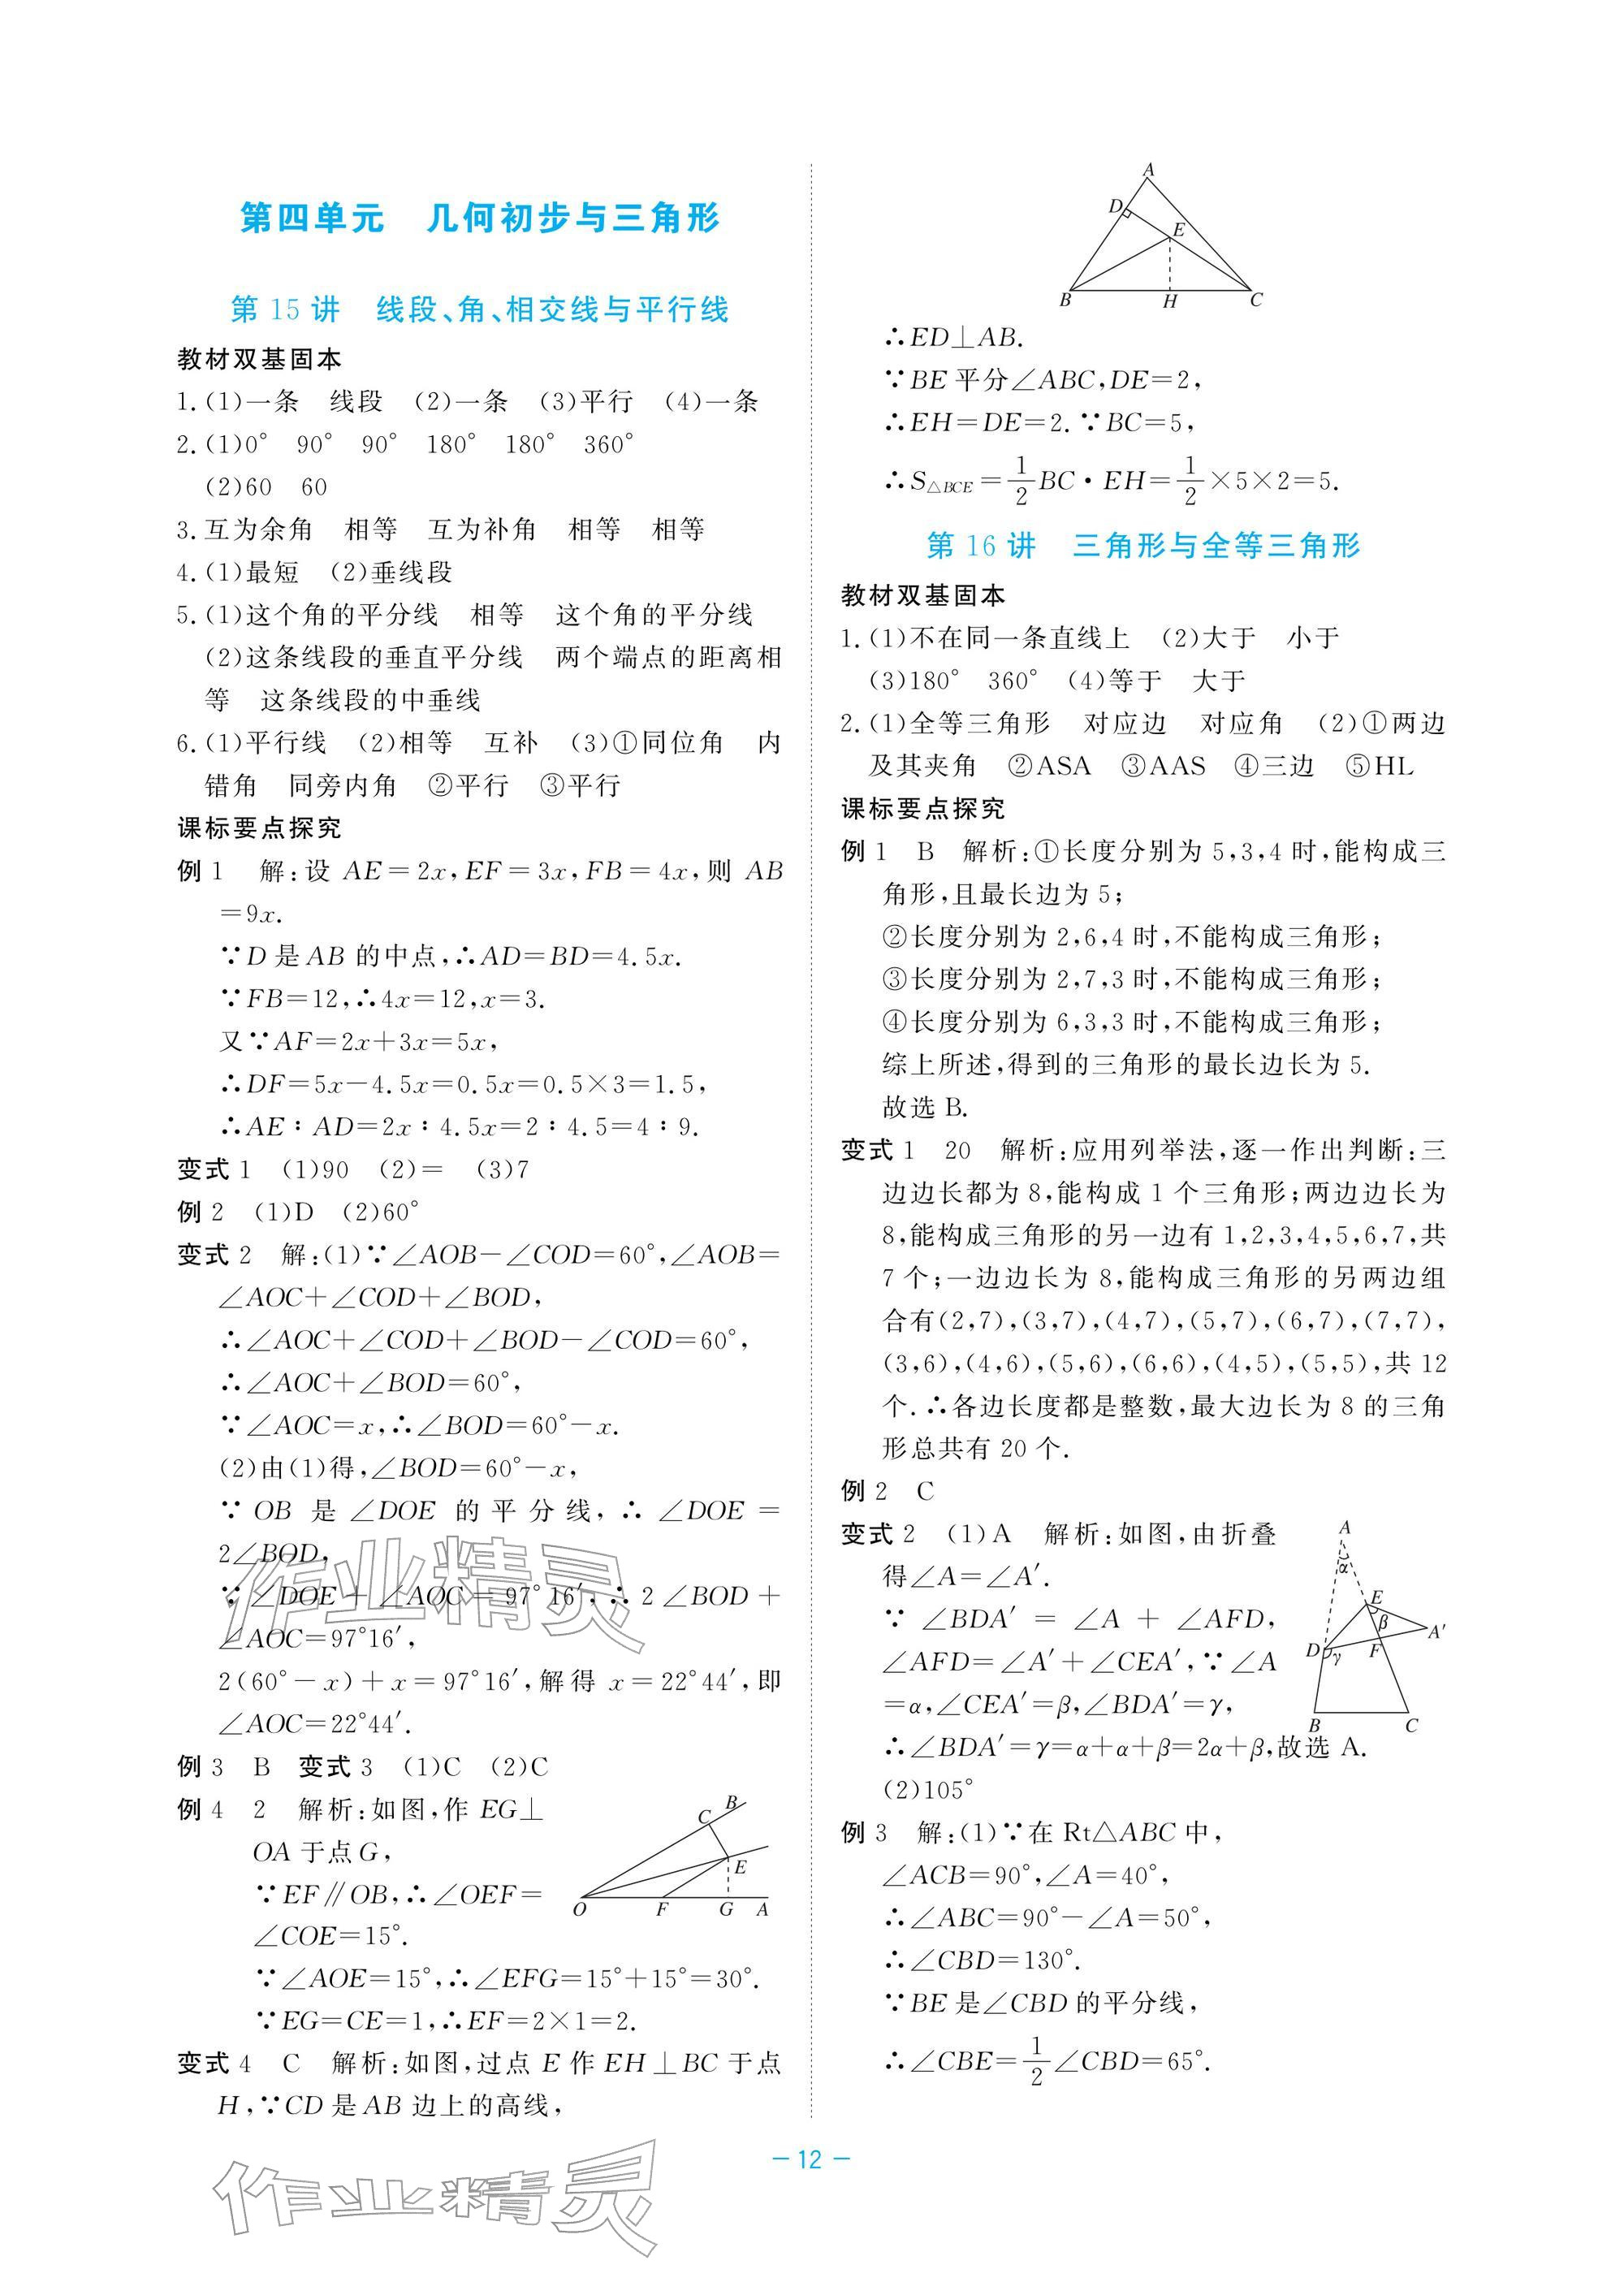 第四单元　几何初步与三角形
第 15 讲　线段、角、相交线与平行线
教材双基固本
1.(1)一条　线段　(2)一条　(3)平行　(4)一条
2.(1)0°　90°　90°　180°　180°　360°
(2)60　60
3.互为余角　相等　互为补角　相等　相等
4.(1)最短　(2)垂线段
5.(1)这个角的平分线　相等　这个角的平分线
(2)这条线段的垂直平分线　两个端点的距离相
等　这条线段的中垂线
6.(1)平行线　(2)相等　互补　(3)①同位角　内
错角　同旁内角　②平行　③平行
课标要点探究
例 1　解:设 AE=2x,EF=3x,FB=4x,则 AB
=9x.
∵D 是 AB 的中点,∴AD=BD=4.5x.
∵FB=12,∴4x=12,x=3.
又∵AF=2x+3x=5x,
∴DF=5x-4.5x=0.5x=0.5×3=1.5,
∴AE∶AD=2x∶4.5x=2∶4.5=4∶9.
变式 1　(1)90　(2)=　(3)7
例 2　(1)D　(2)60°
变式 2　解:(1)∵∠AOB-∠COD=60°,∠AOB=
∠AOC+∠COD+∠BOD,
∴∠AOC+∠COD+∠BOD-∠COD=60°,
∴∠AOC+∠BOD=60°,
∵∠AOC=x,∴∠BOD=60°-x.
(2)由(1)得,∠BOD=60°-x,
∵ OB 是 ∠DOE 的平分线,∴ ∠DOE =
2∠BOD,
∵ ∠DOE + ∠AOC = 97°16′,∴ 2∠BOD +
∠AOC=97°16′,
2(60°-x)+x=97°16′,解得 x=22°44′,即
∠AOC=22°44′.
例 3　B　变式 3　(1)C　(2)C
例 4　2　解析:如图,作 EG⊥
OA 于点 G,
∵EF∥OB,∴∠OEF=
∠COE=15°.
B
C
E
O
F
G
A
∵∠AOE=15°,∴∠EFG=15°+15°=30°.
∵EG=CE=1,∴EF=2×1=2.
变式 4　C　解析:如图,过点 E 作 EH⊥BC 于点
H,∵CD 是 AB 边上的高线,
A
D
E
B
H
C
∴ED⊥AB.
∵BE 平分∠ABC,DE=2,
∴EH=DE=2.∵BC=5,
∴S△BCE=1/2BC·EH=1/2×5×2=5.
第 16 讲　三角形与全等三角形
教材双基固本
1.(1)不在同一条直线上　(2)大于　小于
(3)180°　360°　(4)等于　大于
2.(1)全等三角形　对应边　对应角　(2)①两边
及其夹角　②ASA　③AAS　④三边　⑤HL
课标要点探究
例 1　B　解析:①长度分别为 5,3,4 时,能构成三
角形,且最长边为 5;
②长度分别为 2,6,4 时,不能构成三角形;
③长度分别为 2,7,3 时,不能构成三角形;
④长度分别为 6,3,3 时,不能构成三角形;
综上所述,得到的三角形的最长边长为 5.
故选 B.
变式 1　20　解析:应用列举法,逐一作出判断:三
边边长都为 8,能构成 1 个三角形;两边边长为
8,能构成三角形的另一边有 1,2,3,4,5,6,7,共
7 个;一边边长为 8,能构成三角形的另两边组
合有(2,7),(3,7),(4,7),(5,7),(6,7),(7,7),
(3,6),(4,6),(5,6),(6,6),(4,5),(5,5),共 12
个.∴各边长度都是整数,最大边长为 8 的三角
形总共有 20 个.
例 2　C
变式 2　(1)A　解析:如图,由折叠
得∠A=∠A′.
∵ ∠BDA′ = ∠A + ∠AFD,
∠AFD=∠A′+∠CEA′,∵∠A
=α,∠CEA′=β,∠BDA′=γ,
A
α
E
β
A′
D
γ
F
B
C
∴∠BDA′=γ=α+α+β=2α+β,故选 A.
(2)105°
例 3　解:(1)∵在 Rt△ABC 中,
∠ACB=90°,∠A=40°,
∴∠ABC=90°-∠A=50°,
∴∠CBD=130°.
∵BE 是∠CBD 的平分线,
∴∠CBE=1/2∠CBD=65°.
作业精灵
— 12 —
作业精灵